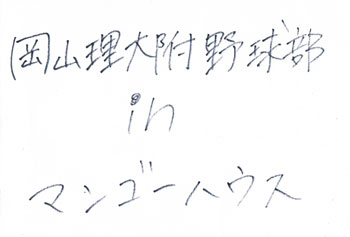 岡山理大附野球部
in
マンゴーハウス